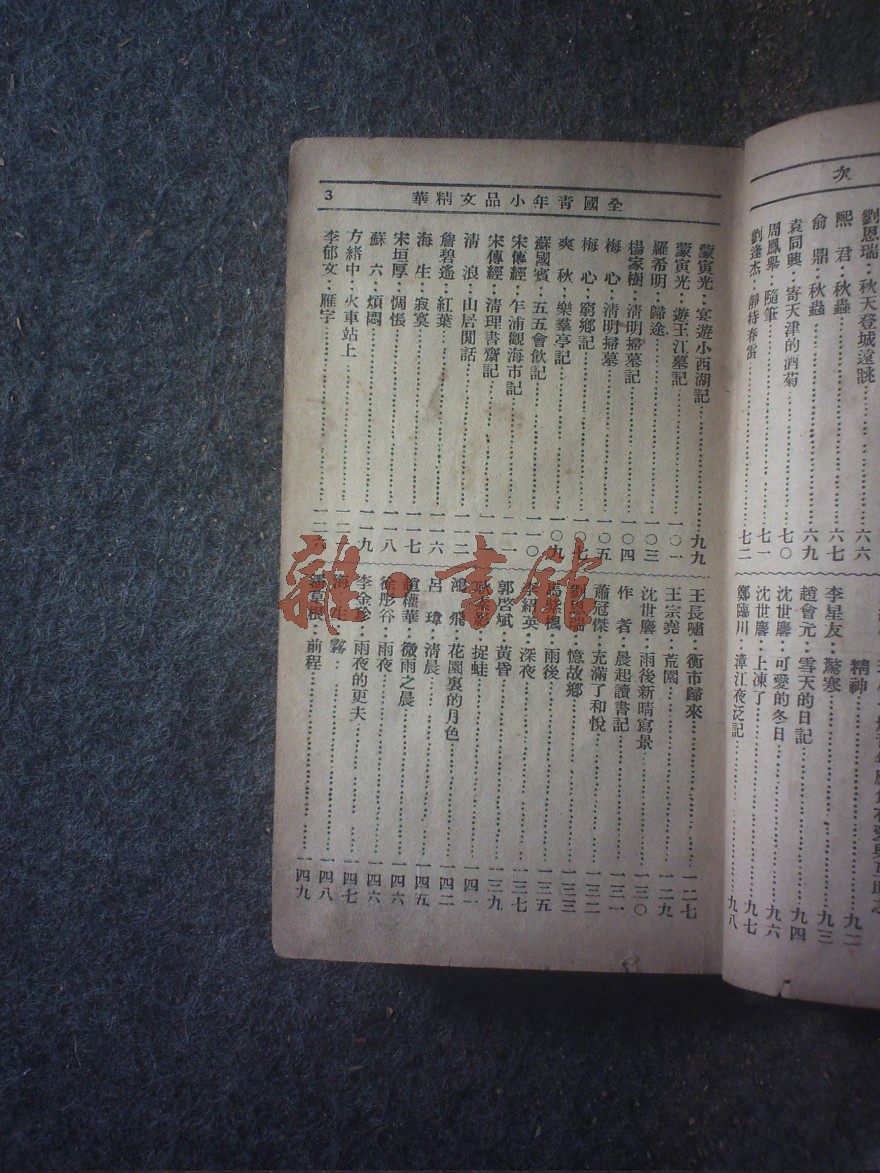 次
劉恩瑞：秋天登城遠眺……六六
熙君：秋蟲……六七
俞鼎：秋蟲……六九
袁同興：寄天津的酒菊……七〇
周鳳舉：隨筆……七一
劉逢杰：靜待春雷……七二
精神……九二
李星友：驚寒……九三
趙會元：雪天的日記……九四
沈世麐：可愛的冬日……九六
沈世麐：上凍了……九七
鄭臨川：漳江夜泛記……九八
全國青年小品文精華 3
蒙寅光：宴遊小西湖記……九九
蒙寅光：遊王江墓記……一〇一
羅希明：歸途……一〇三
楊家樹：清明掃墓記……一〇四
梅心：清明掃墓……一〇五
梅心：窮鄉記……一〇七
爽秋：樂羣亭記……一〇九
蘇國賓：五五會飲記……一一〇
宋傳經：乍浦觀海市記……一一一
宋傳經：清理書齋記……一一一
清浪：山居閒話……一一二
詹碧遙：紅葉……一一六
海生：寂寞……一一七
宋垣厚：惆悵……一一八
蘇六：煩悶……一一九
方緒中：火車站上……一二
李郁文：雁字……一二六
王長嘯：衡市歸來……一二七
王宗堯：荒園……一二九
沈世麐：雨後新晴寫景……一三〇
作者：晨起讀書記……一三一
蕭冠傑：充滿了和悅……一三二
劉恩瑞：憶故鄉……一三三
馮紫：雨後……一三五
余紹英：深夜……一三七
郭啓斌：黃昏……一三九
捉蛙……一四一
鴻飛：花園裏的月色……一四二
呂瑋：清晨……一四五
趙權華：微雨之晨……一四六
徐彤谷：雨夜……一四六
李金珍：雨夜的更夫……一四七
海生：霧……一四八
潘莫根：前程……一四九
雜·書館